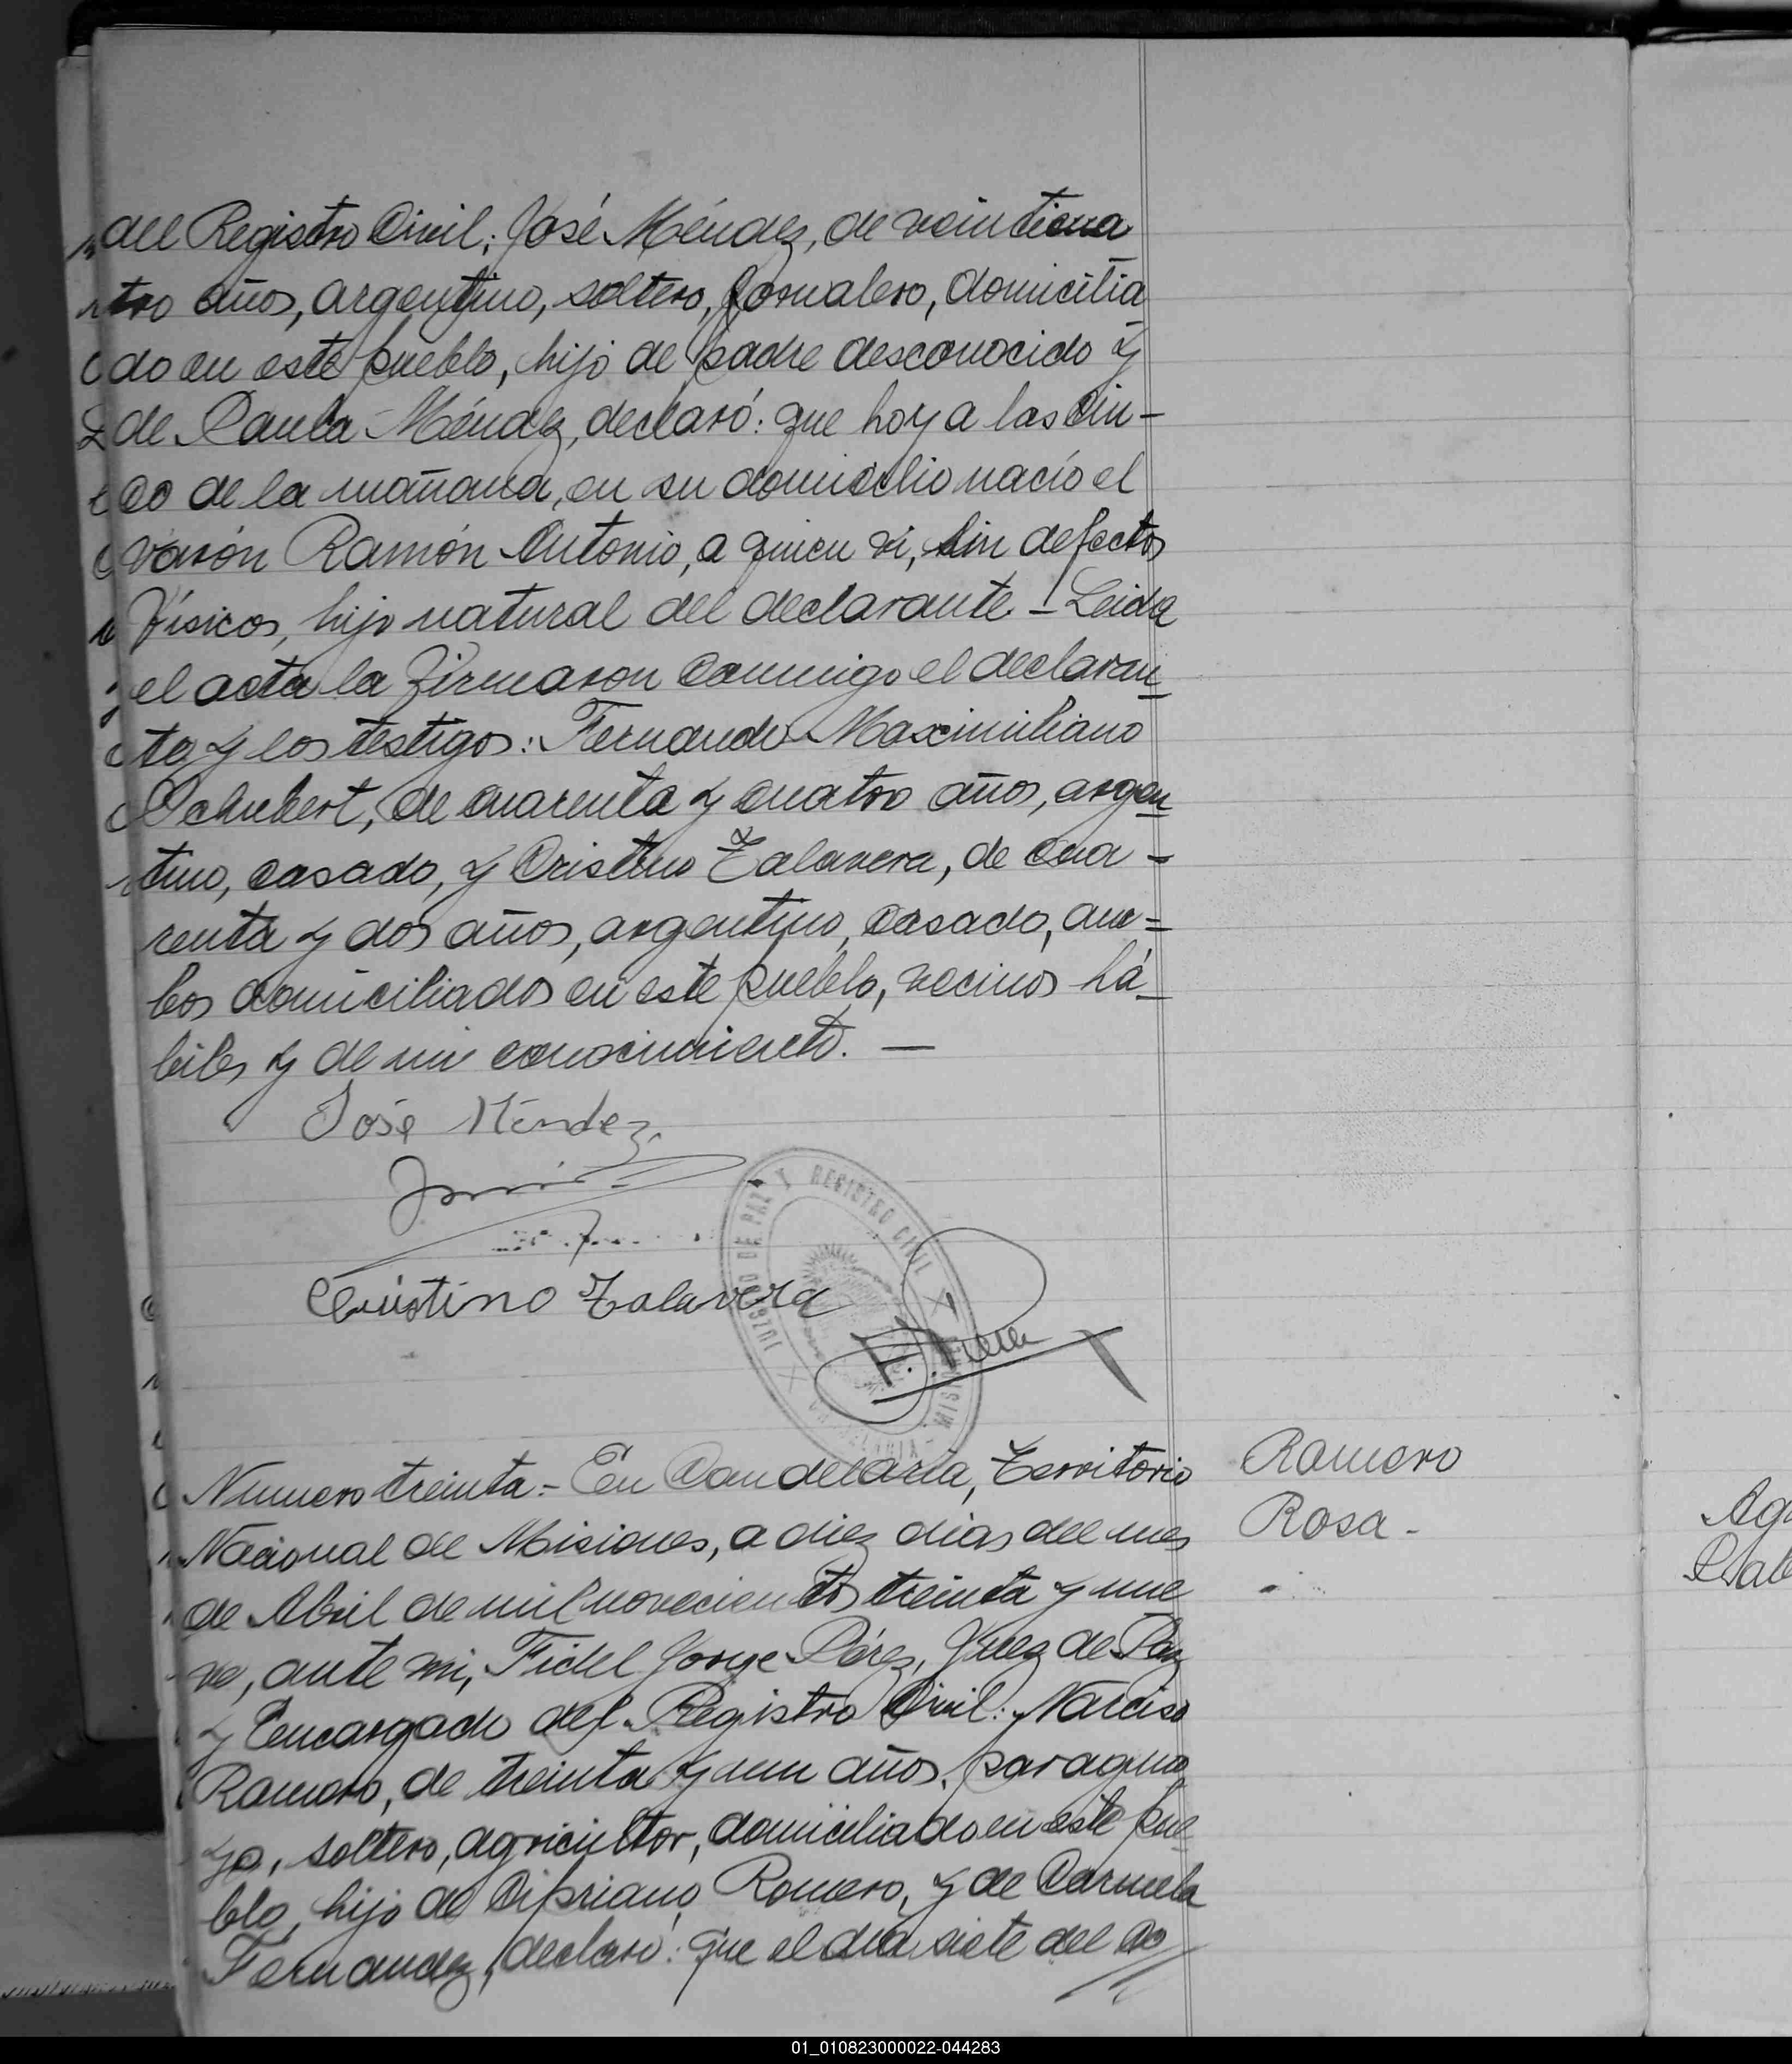 del Registro Civil; José Méndez, de veinticua
tro años, argentino, soltero, jornalero, domicilia
do en este pueblo, hijo de padre desconocido y
de Paula Méndez, declaró: que hoy a las cin-
co de la mañana, en su domicilio nació el
varón Ramón Antonio, a quien vi, sin defectos
físicos, hijo natural del declarante - Leida
el acta la firmaron conmigo el declaran_
te y los testigos: Fernando Maximiliano
Schubert, de cuarenta y cuatro años, argen
tino, casado, y Cristino Zalavera, de cua-
renta y dos años, argentino, casado, am=
bos domiciliados en este pueblo, vecinos há_
biles y de mi conocimiento. —
José Méndez
Cristino Zalavera
JUZGADO DE PAZ Y REGISTRO CIVIL
Número treinta.- En Candelaria, Territorio
Nacional de Misiones, a diez dias del mes
de Abril de mil novecientos treinta y nue
ve, ante mi, Fidel Jorge Pérez, Juez de Paz
y Encargado del Registro Civil: Narciso
Romero, de treinta y un años, paragua
yo, soltero, agricultor, domiciliado en este pue_
blo, hijo de Cipriano Romero, y de Carmela
Fernandez, declaró: que el día siete del co
Romero
Rosa -
01_010823000022-044283